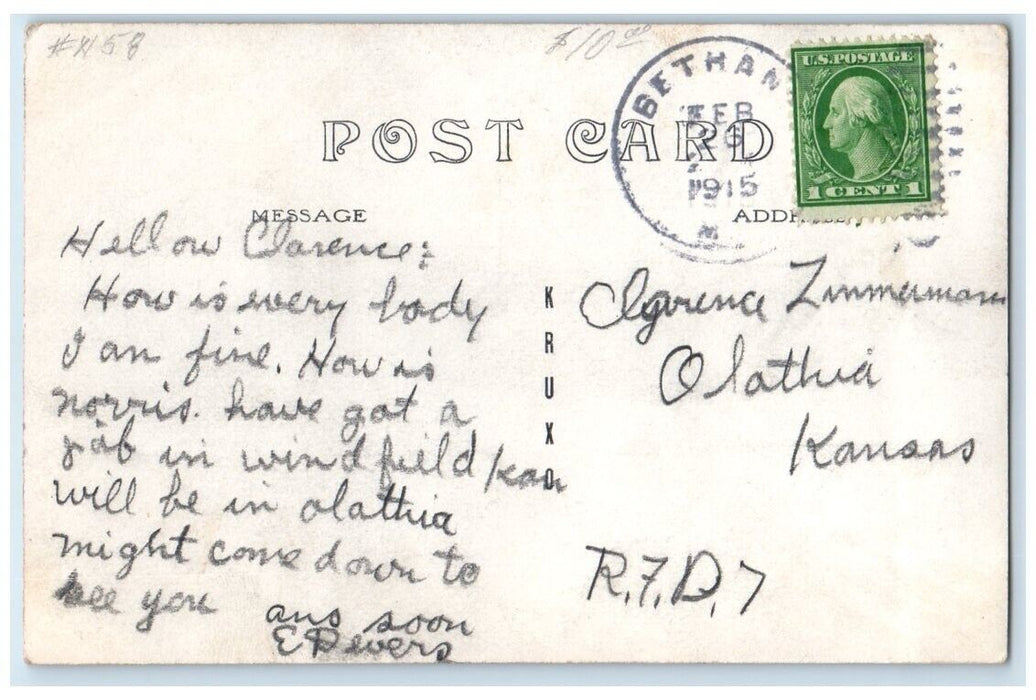 #458
$10.00
BETHAN
FEB
26
1915
M
U.S. POSTAGE
1 CENT 1
POST CARD
MESSAGE
Hellow Clarence:
How is every body
I am fine. How is
norris. have got a
job in windfield Kan
will be in olathia
might come down to
see you
ans soon
E Devers
KRUXO
Clarence Zimmermann
Olathia
Kansas
R.F.D. 7